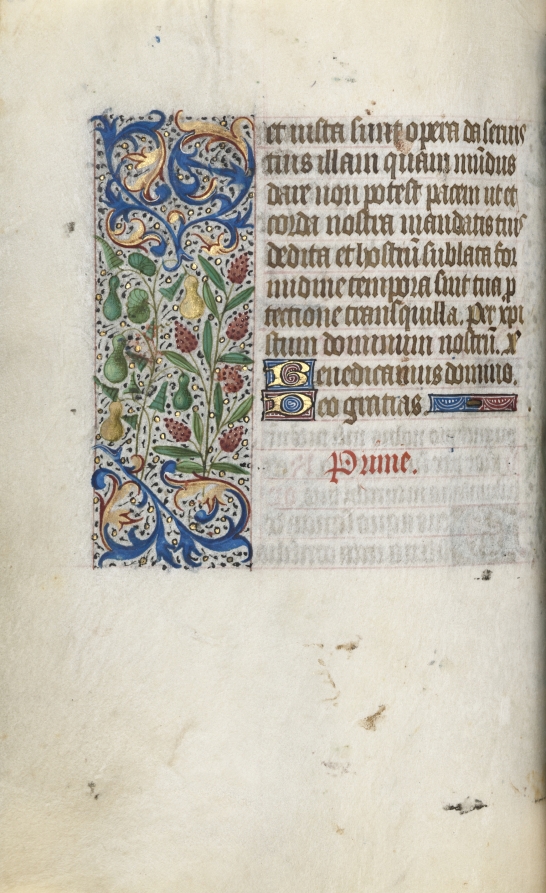 et iusta sunt opera da seruis
tuis illam quam mūdus
dare non potest pacem ut et
corda nostra mandatis tuis
dedita et hostiū sublata for
midine tempora sint tua p
tectione tranquilla. Per xpi
stum dominum nostrū.
Benedicamus domino.
Deo gratias.
Prime.